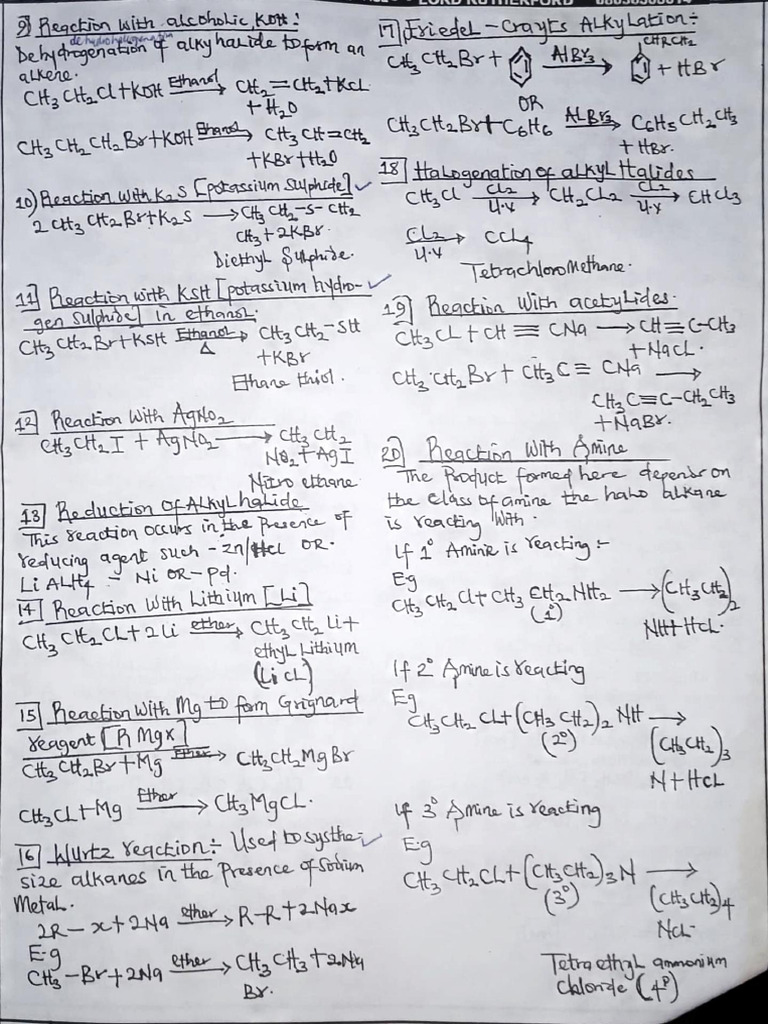 LORD RUTHERFORD 08036505614
9) Reaction with alcoholic KOH:
dehydrohalogenation
Dehydrogenation of alkyhalide to form an
alkene.
CH3CH2Cl + KOH Ethanol → CH2=CH2 + KCL
+ H2O
CH3CH2CH2Br + KOH Ethanol → CH3CH=CH2
+ KBr + H2O
10) Reaction with K2S [potassium sulphide]
2CH3CH2Br + K2S → CH3CH2-S-CH2
CH3 + 2KBr.
Diethyl Sulphide.
11 Reaction with KSH [potassium hydro-
gen sulphide] in ethanol.
CH3CH2Br + KSH Ethanol → Δ CH3CH2-SH
+ KBr
Ethane thiol.
12 Reaction with AgNO2
CH3CH2I + AgNO2 → CH3CH2
NO2 + AgI
Nitro ethane
13 Reduction of ALkyL halide
This reaction occurs in the presence of
reducing agent such - Zn/HCl OR.
Li ALH4 - Ni OR - Pd.
14 Reaction with Lithium [Li]
CH3CH2CL + 2Li ether → CH3CH2Li +
ethyL Lithium
(LiCL)
15 Reaction with Mg to form Grignard
reagent [RMgx]
CH3CH2Br + Mg Ether → CH3CH2MgBr
CH3CL + Mg Ether → CH3MgCL.
16 Wurtz reaction:- Used to systhe-
size alkanes in the presence of sodium
Metal.
2R-x + 2Na ether → R-R + 2Nax
E.g
CH3-Br + 2Na ether → CH3CH3 + 2Na
Br.
17 Friedel-Crayts ALkyLation:-
CH3CH2Br + AlBr3 → CH2CH2 + HBr
OR
CH3CH2Br + C6H6 ALBr3 → C6H5CH2CH3
+ HBr.
18 Halogenation of alkyl Halides
CH3Cl Cl2 → U.V CH2Cl2 Cl2 → U.V CHCl3
Cl2 → U.V CCl4
TetrachloroMethane.
19 Reaction With acetylides.
CH3CL + CH≡CNa → CH≡C-CH3
+ NaCL.
CH3CH2Br + CH3C≡CNa →
CH3C≡C-CH2CH3
+ NaBr.
20 Reaction With Amine
The Product formed here depends on
the class of amine the halo alkane
is reacting with.
If 1° Amine is reacting:-
Eg
CH3CH2Cl + CH3CH2NH2 → (CH3CH2)2
(1°)
NH + HCL.
If 2° Amine is reacting
Eg
CH3CH2CL + (CH3CH2)2NH →
(2°)
(CH3CH2)3
N + HCL
If 3° Amine is reacting
E.g
CH3CH2CL + (CH3CH2)3N →
(3°)
(CH3CH2)4
NCL
Tetraethyl ammonium
chloride (4°)